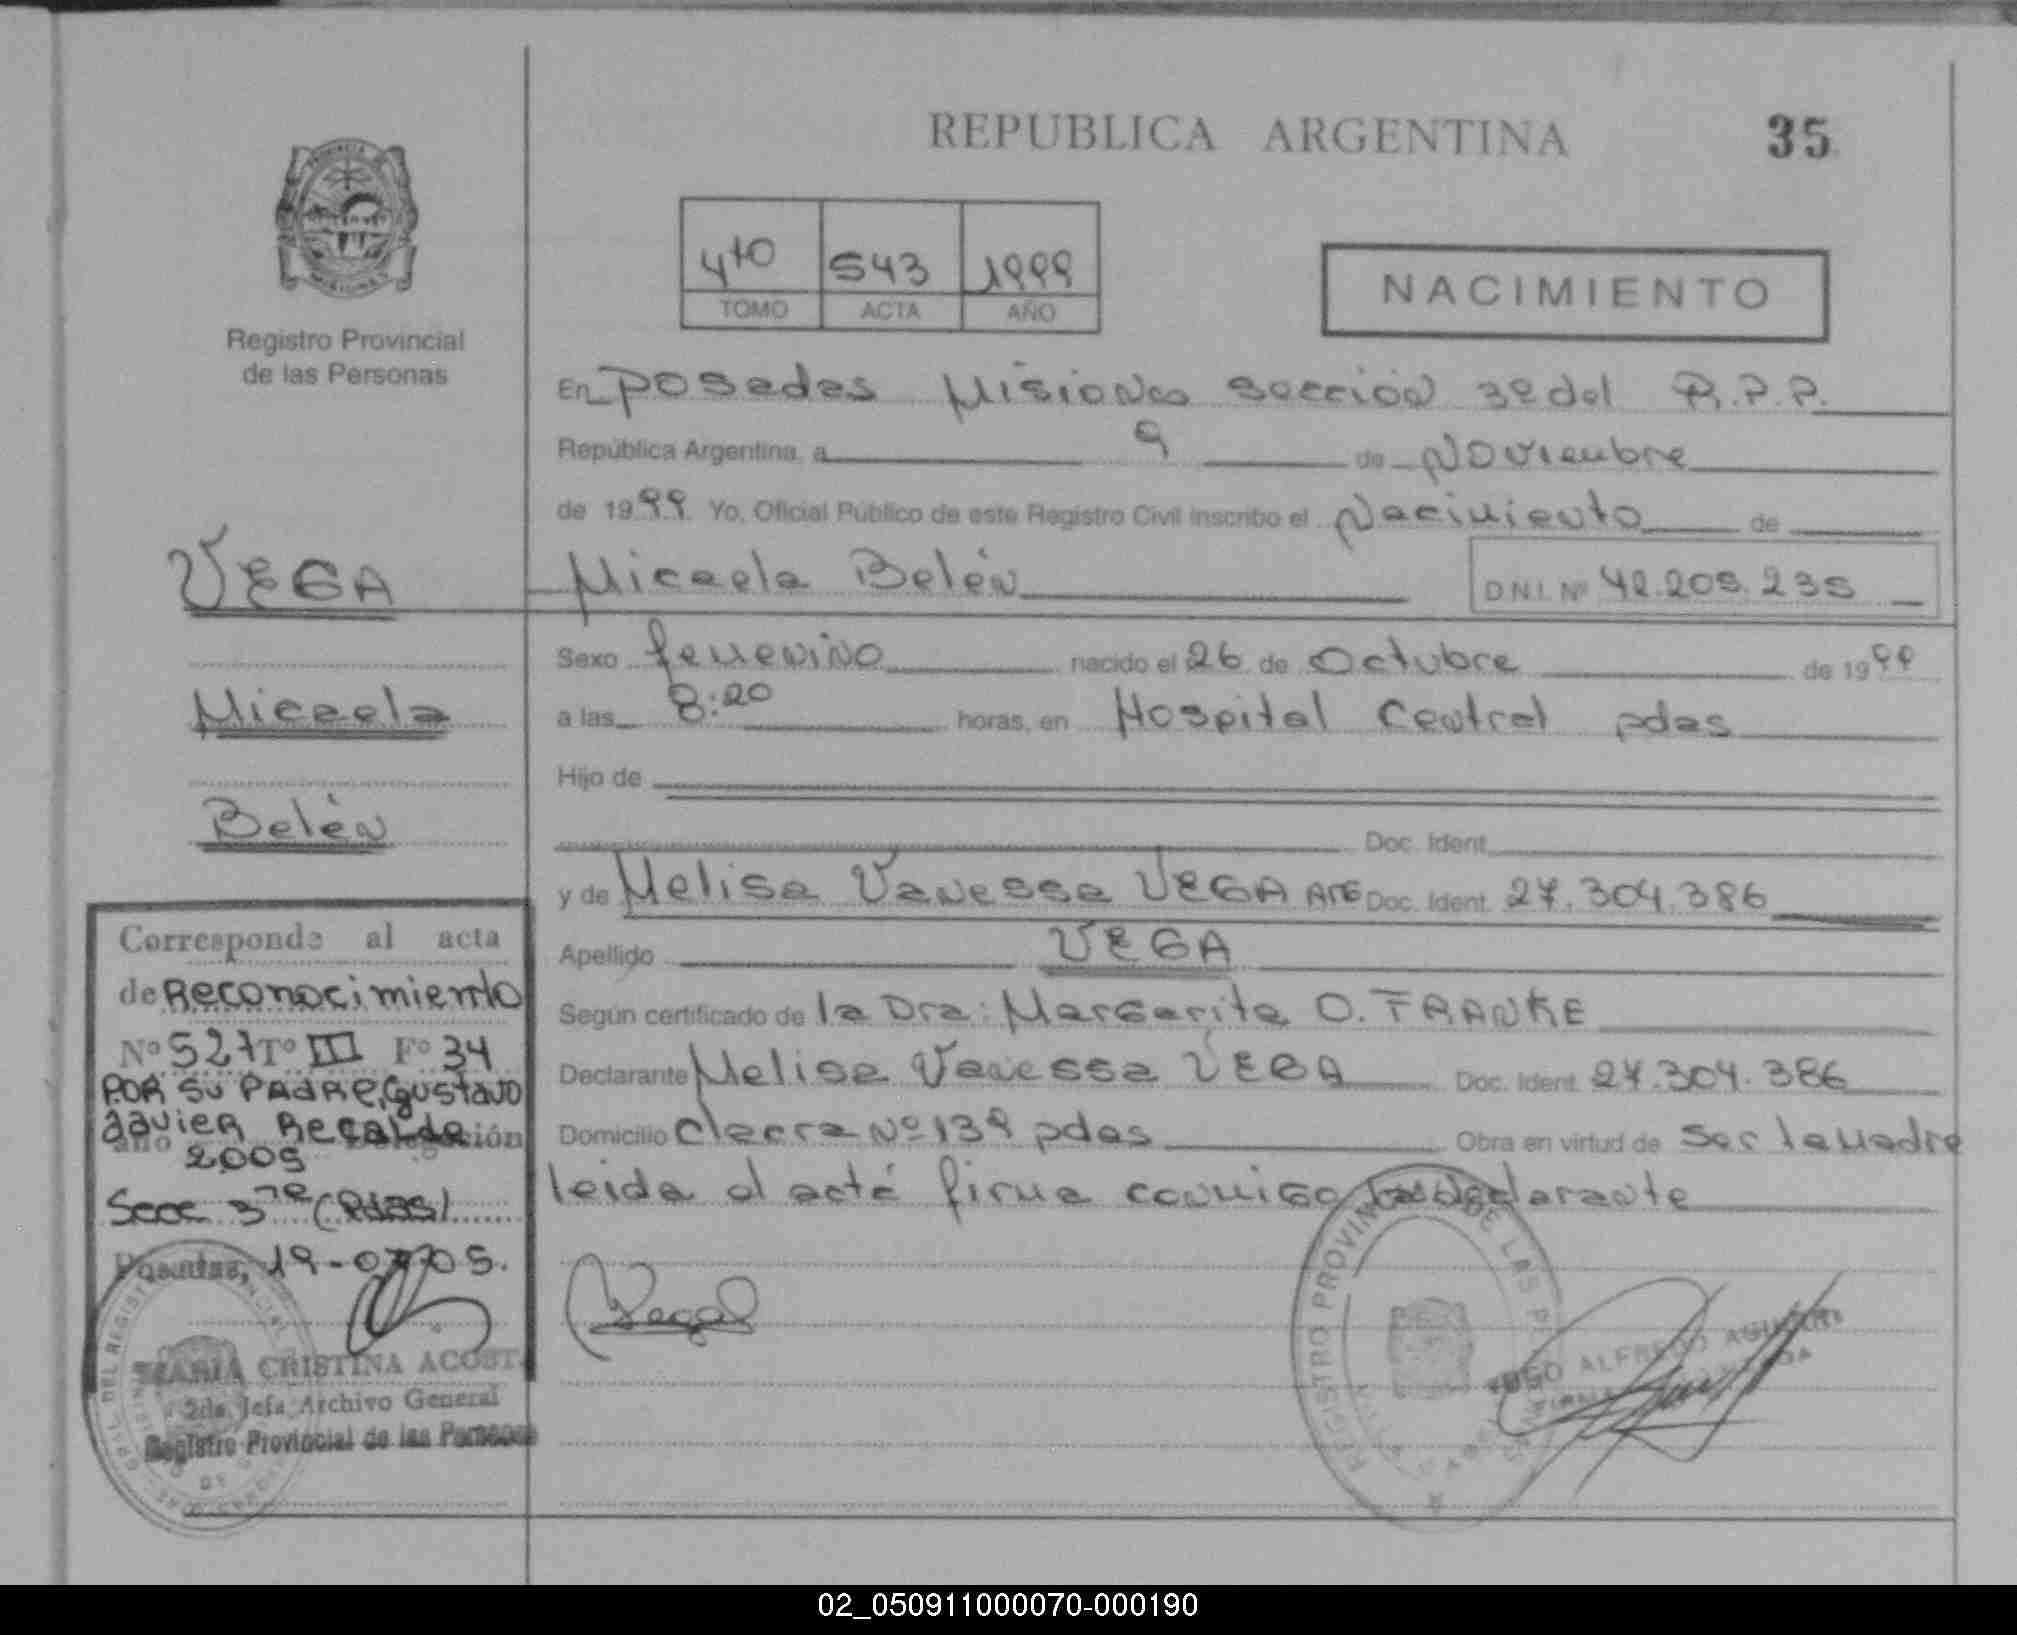 REPUBLICA ARGENTINA
35
4to 543 1999
TOMO ACTA AÑO
NACIMIENTO
Registro Provincial
de las Personas
En Posadas Misiones sección 3º del R.P.P.
República Argentina, a 9 de Noviembre
de 1999 Yo, Oficial Público de este Registro Civil inscribo el Nacimiento de
Micaela Belén D.N.I. Nº 42.205.235
Sexo femenino nacido el 26 de Octubre de 1999
a las 8:20 horas, en Hospital Central pdas
Hijo de
Doc. Ident.
y de Melisa Vanessa VEGA ARG Doc. Ident. 27.304.386
Apellido VEGA
Según certificado de la Dra: Margarita O. FRANKE
Declarante Melisa Vanessa VEGA Doc. Ident. 27.304.386
Domicilio Nº 139 pdas Obra en virtud de ser la madre
leida el acta firma conmigo la declarante
Vega
REGISTRO PROVINCIAL DE LAS
ALFREDO
VEGA
Micaela
Belén
Corresponde al acta
de Reconocimiento
Nº 527 Tº III Fº 34
POR SU PADRE, Gustavo
Javier Recalde
año 2005
Secc 3ra (Pdas)
Posadas, 19-07-05.
MARIA CRISTINA ACOST
2da. Jefa Archivo General
Registro Provincial de las Personas
02_050911000070-000190